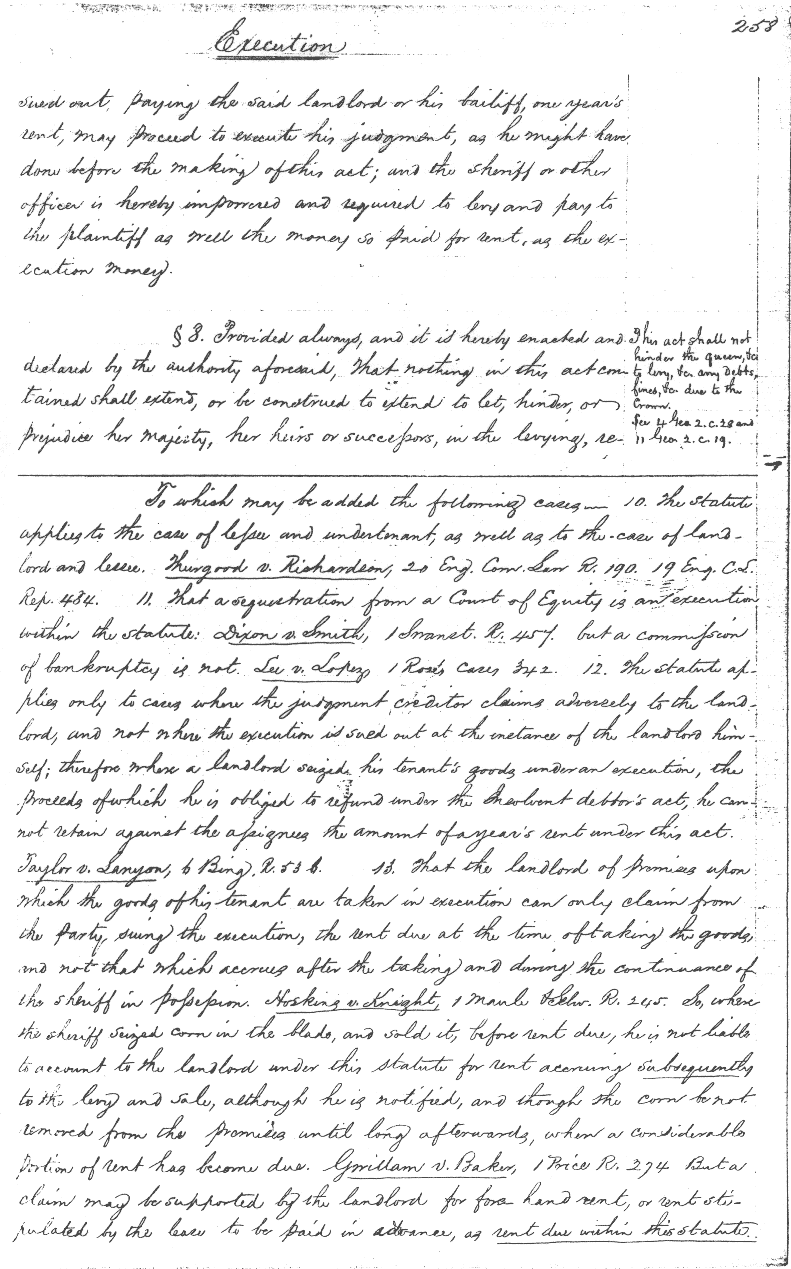 258
Execution
sued out, paying the said landlord or his bailiff, one year's
rent, may proceed to execute his judgment, as he might have
done before the making of this act; and the sheriff or other
officer is hereby impowered and required to levy and pay to
the plaintiff as well the money so paid for rent, as the ex-
ecution money.
§ 8. Provided always, and it is hereby enacted and
declared by the authority aforesaid, That nothing in this act con-
tained shall extend, or be construed to extend to let, hinder, or
prejudice her majesty, her heirs or successors, in the levying, re-
This act shall not
hinder the queen, &c
to levy, &c any Debts,
fines, &c due to the
Crown.
See 4 Geo 2. c. 28 and
11 Geo 2. c. 19.
To which may be added the following cases — 10. The statute
applies to the case of lessee and undertenant, as well as to the case of land-
lord and lessee. Thurgood v. Richardson, 20 Eng. Com. Law R. 190. 19 Eng. C. L.
Rep. 484. 11. That a sequestration from a Court of Equity is an execution
within the statute: Dixon v. Smith, 1 Swanst. R. 457. but a commission
of bankruptcy is not. Lee v. Lopez, 1 Rose's cases 342. 12. The statute ap-
plies only to cases where the judgment creditor claims adversely to the land-
lord, and not where the execution is sued out at the instance of the landlord him-
self; therefore where a landlord seized his tenant's goods under an execution, the
proceeds of which he is obliged to refund under the Insolvent debtor's act, he can-
not retain against the assignees the amount of a year's rent under this act.
Taylor v. Lanyon, 6 Bing. R. 536. 13. That the landlord of premises upon
which the goods of his tenant are taken in execution can only claim from
the party, suing the execution, the rent due at the time of taking the goods,
and not that which accrues after the taking and during the continuance of
the sheriff in possession. Hosking v. Knight, 1 Maule & Selw. R. 245. So, where
the sheriff seized corn in the blade, and sold it, before rent due, he is not liable
to account to the landlord under this statute for rent accruing subsequently
to the levy and sale, although he is notified, and though the corn be not
removed from the premises until long afterwards, when a considerable
portion of rent has become due. Gwillam v. Baker, 1 Price R. 274 But a
claim may be supported by the landlord for fore hand rent, or rent sti-
pulated by the lease to be paid in advance, as rent due within this statute.